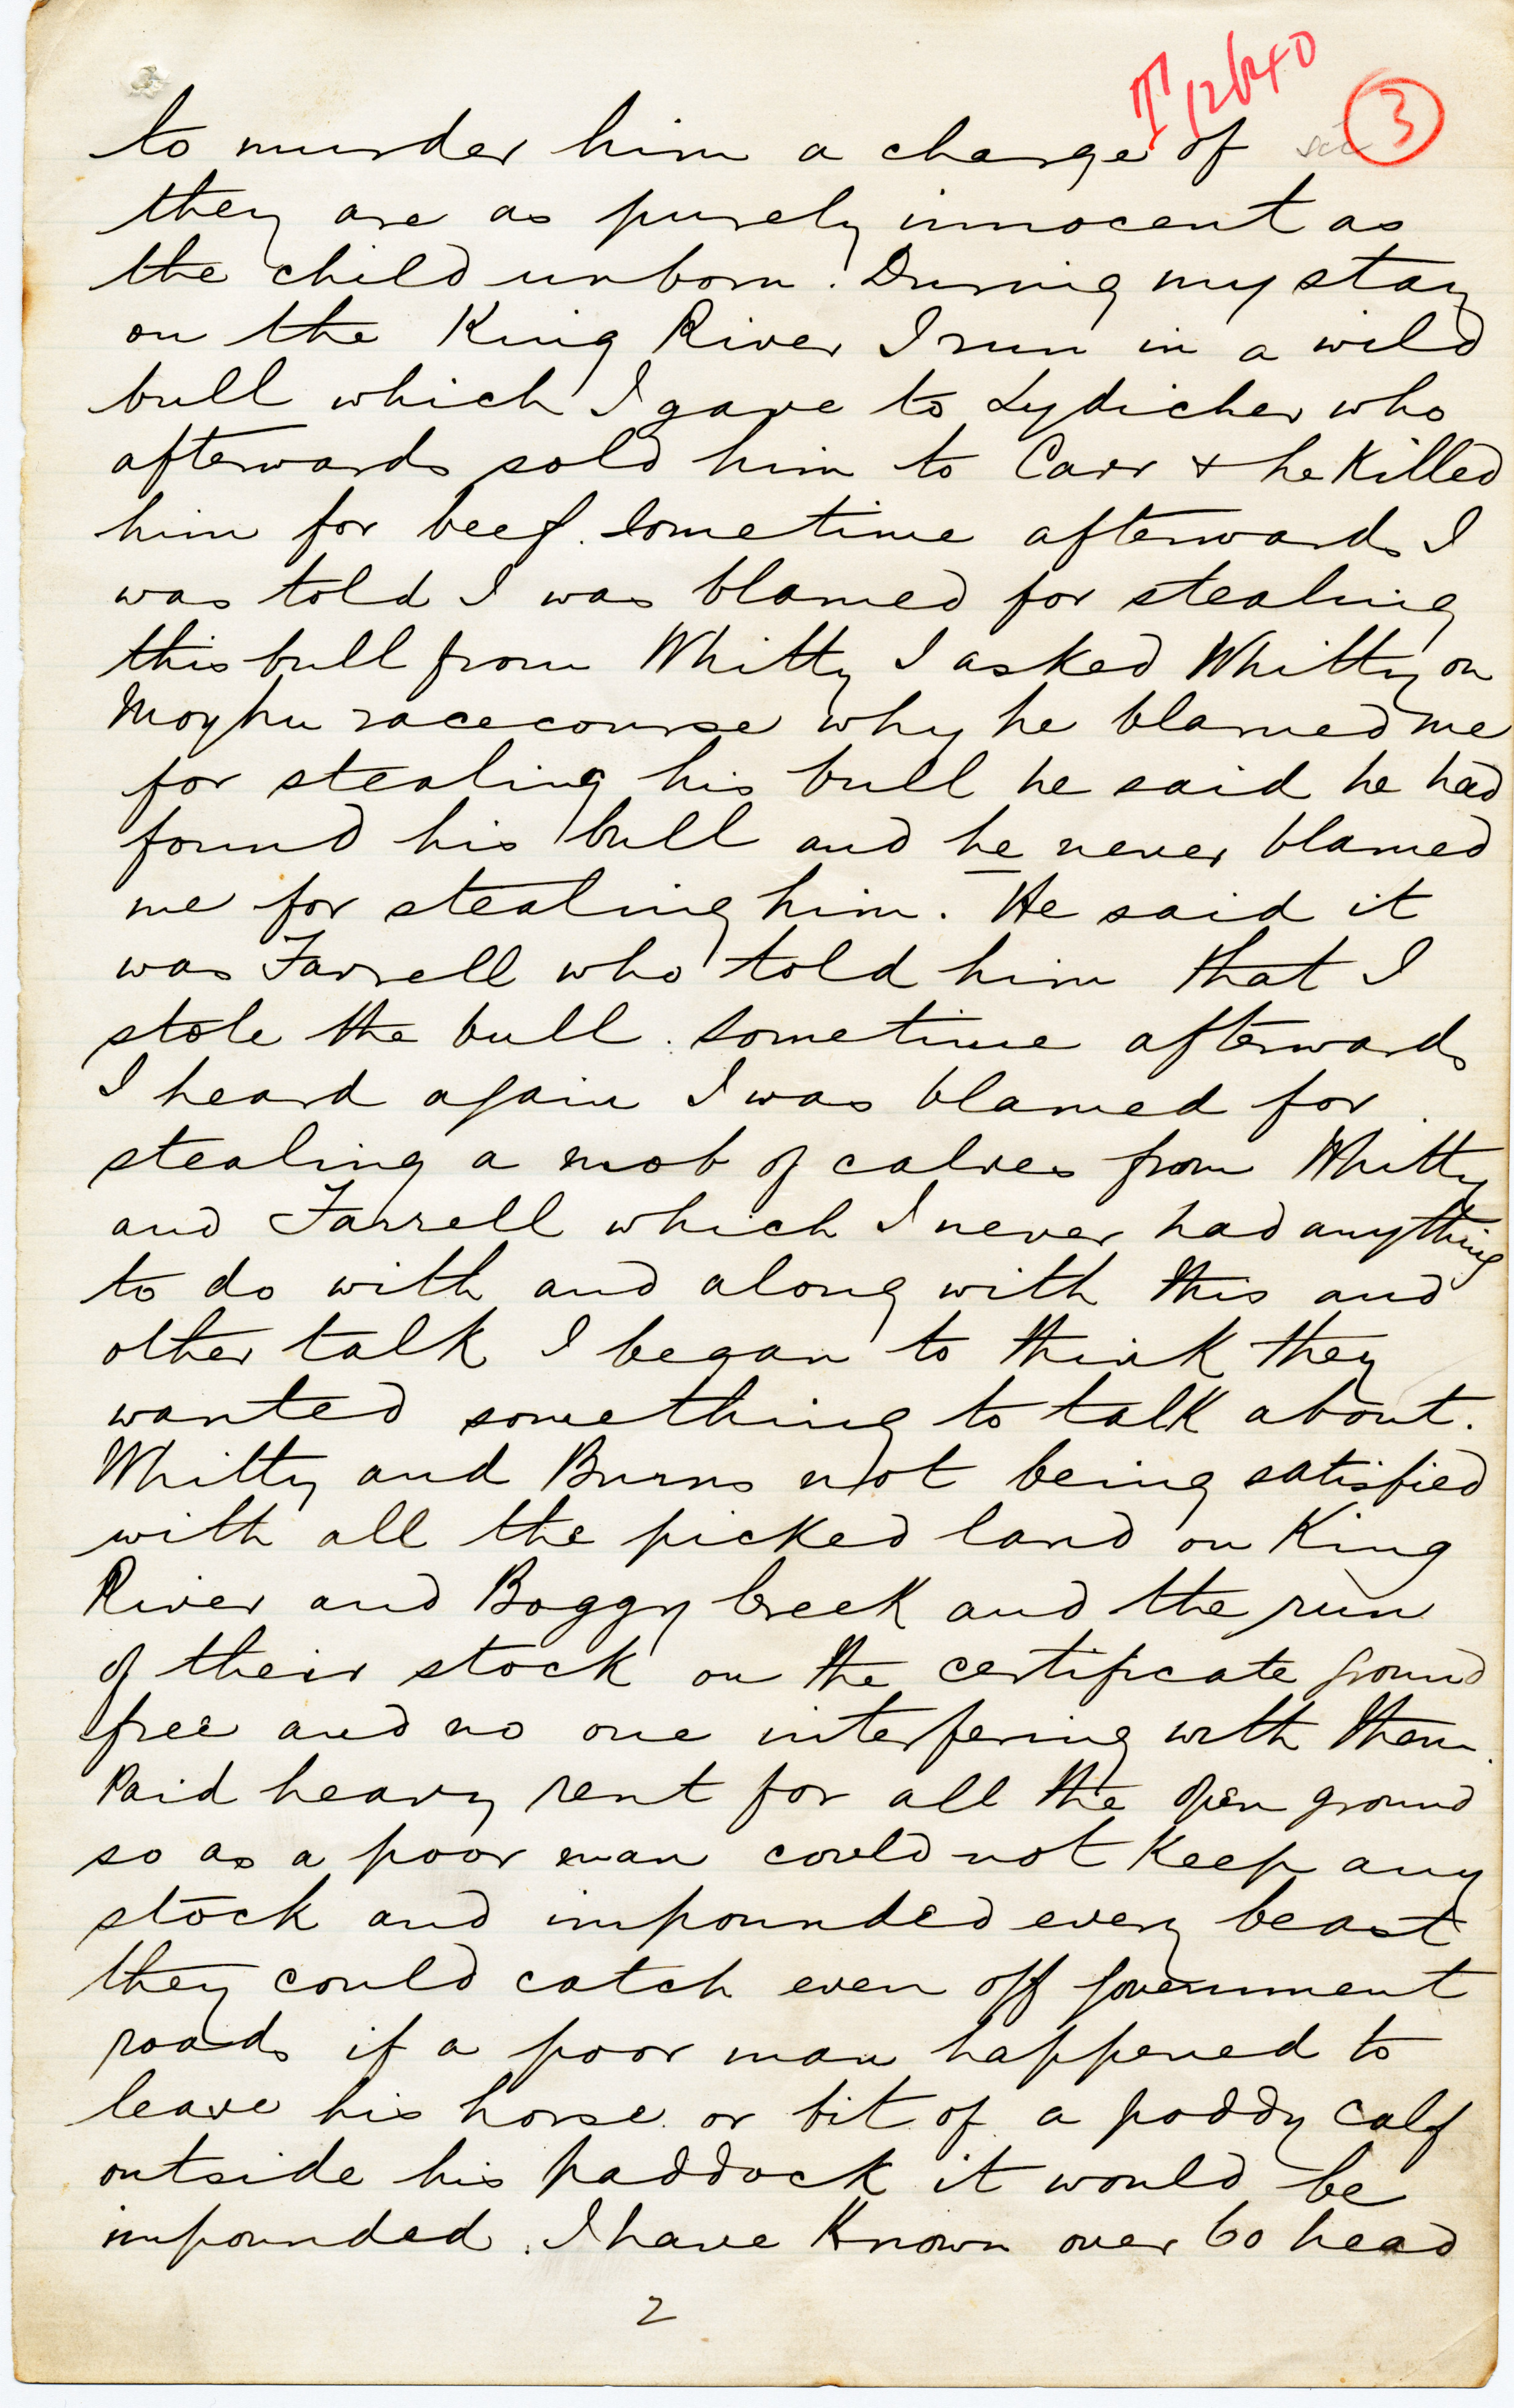 T 12640
3
to murder him a charge of
they are as purely innocent as
the child unborn. During my stay
on the King River I run in a wild
bull which I gave to Lydicher who
afterwards sold him to Carr & he killed
him for beef. Sometime afterwards I
was told I was blamed for stealing
this bull from Whitty I asked Whitty on
Moyhu racecourse why he blamed me
for stealing his bull he said he had
found his bull and he never blamed
me for stealing him. He said it
was Farrell who told him that I
stole the bull. Sometime afterwards
I heard again I was blamed for
stealing a mob of calves from Whitty
and Farrell which I never had anything
to do with and along with this and
other talk I began to think they
wanted something to talk about.
Whitty and Burns not being satisfied
with all the picked land on King
River and Boggy Creek and the run
of their stock on the certificate ground
free and no one interfering with them.
Paid heavy rent for all the open ground
so as a poor man could not keep any
stock and impounded every beast
they could catch even off Government
roads if a poor man happened to
leave his horse or bit of a poddy calf
outside his paddock it would be
impounded. I have known over 60 head
2